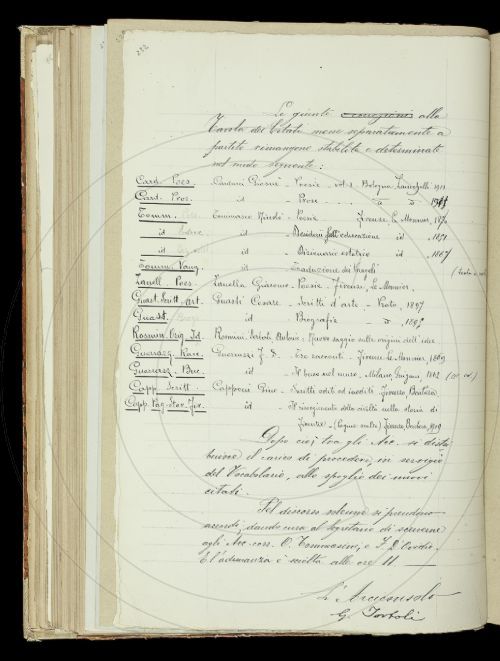 Le giunte correzioni alla
Tavola dei Citati mese separatamente a
partito rimangono stabilite e determinate
nel modo seguente:
Card. Poes. Carducci Giosuè - Poesie vol. 1 Bologna, Zanichelli 1911
Card. Pros. id - Prose
Tomm. Tommaseo Niccolò - Poesie Firenze, Le Monnier, 187
id - Desiderii sull'educazione id. 1851
id - Dizionario estetico id - 1867
Tomm. Vang. id - Traduzione dei Vangeli
Zanell. Poes. Zanella Giacomo - Poesie - Firenze, Le Monnier,
Guast. Scritt. Art. Guasti Cesare - Scritti d'arte - Prato, 1897
Guast. id - Biografie
Rosmin. Orig. Id. Rosmini Serbati Antonio - Nuovo saggio sulla origine dell'idee
Guerrazz. Racc. Guerrazzi F. D. - Tre racconti - Firenze Le Monnier, 1869
Guerrazz. Buc. id - Il buco nel muro - Milano, Guigoni, 1862
Capp. Scritt. Capponi Gino - Scritti editi ed inediti Firenze Barbèra
Capp. Pag. Stor. Fir. id -
Firenze - (Pagine scelte) Firenze, Barbèra, 1909
Dopo ciò, tra gli Acc. si distri
buisce il carico di procedere, in servigio
del Vocabolario, allo spoglio dei nuovi
citati.
Pel discorso solenne si prendono
accordi, dando cura al Segretario di scriverne
agli Acc. corr. O. Tommasini, e F. D'Ovidio.
E l'adunanza è sciolta alle ore 11
L'Arciconsolo
G. Tortoli